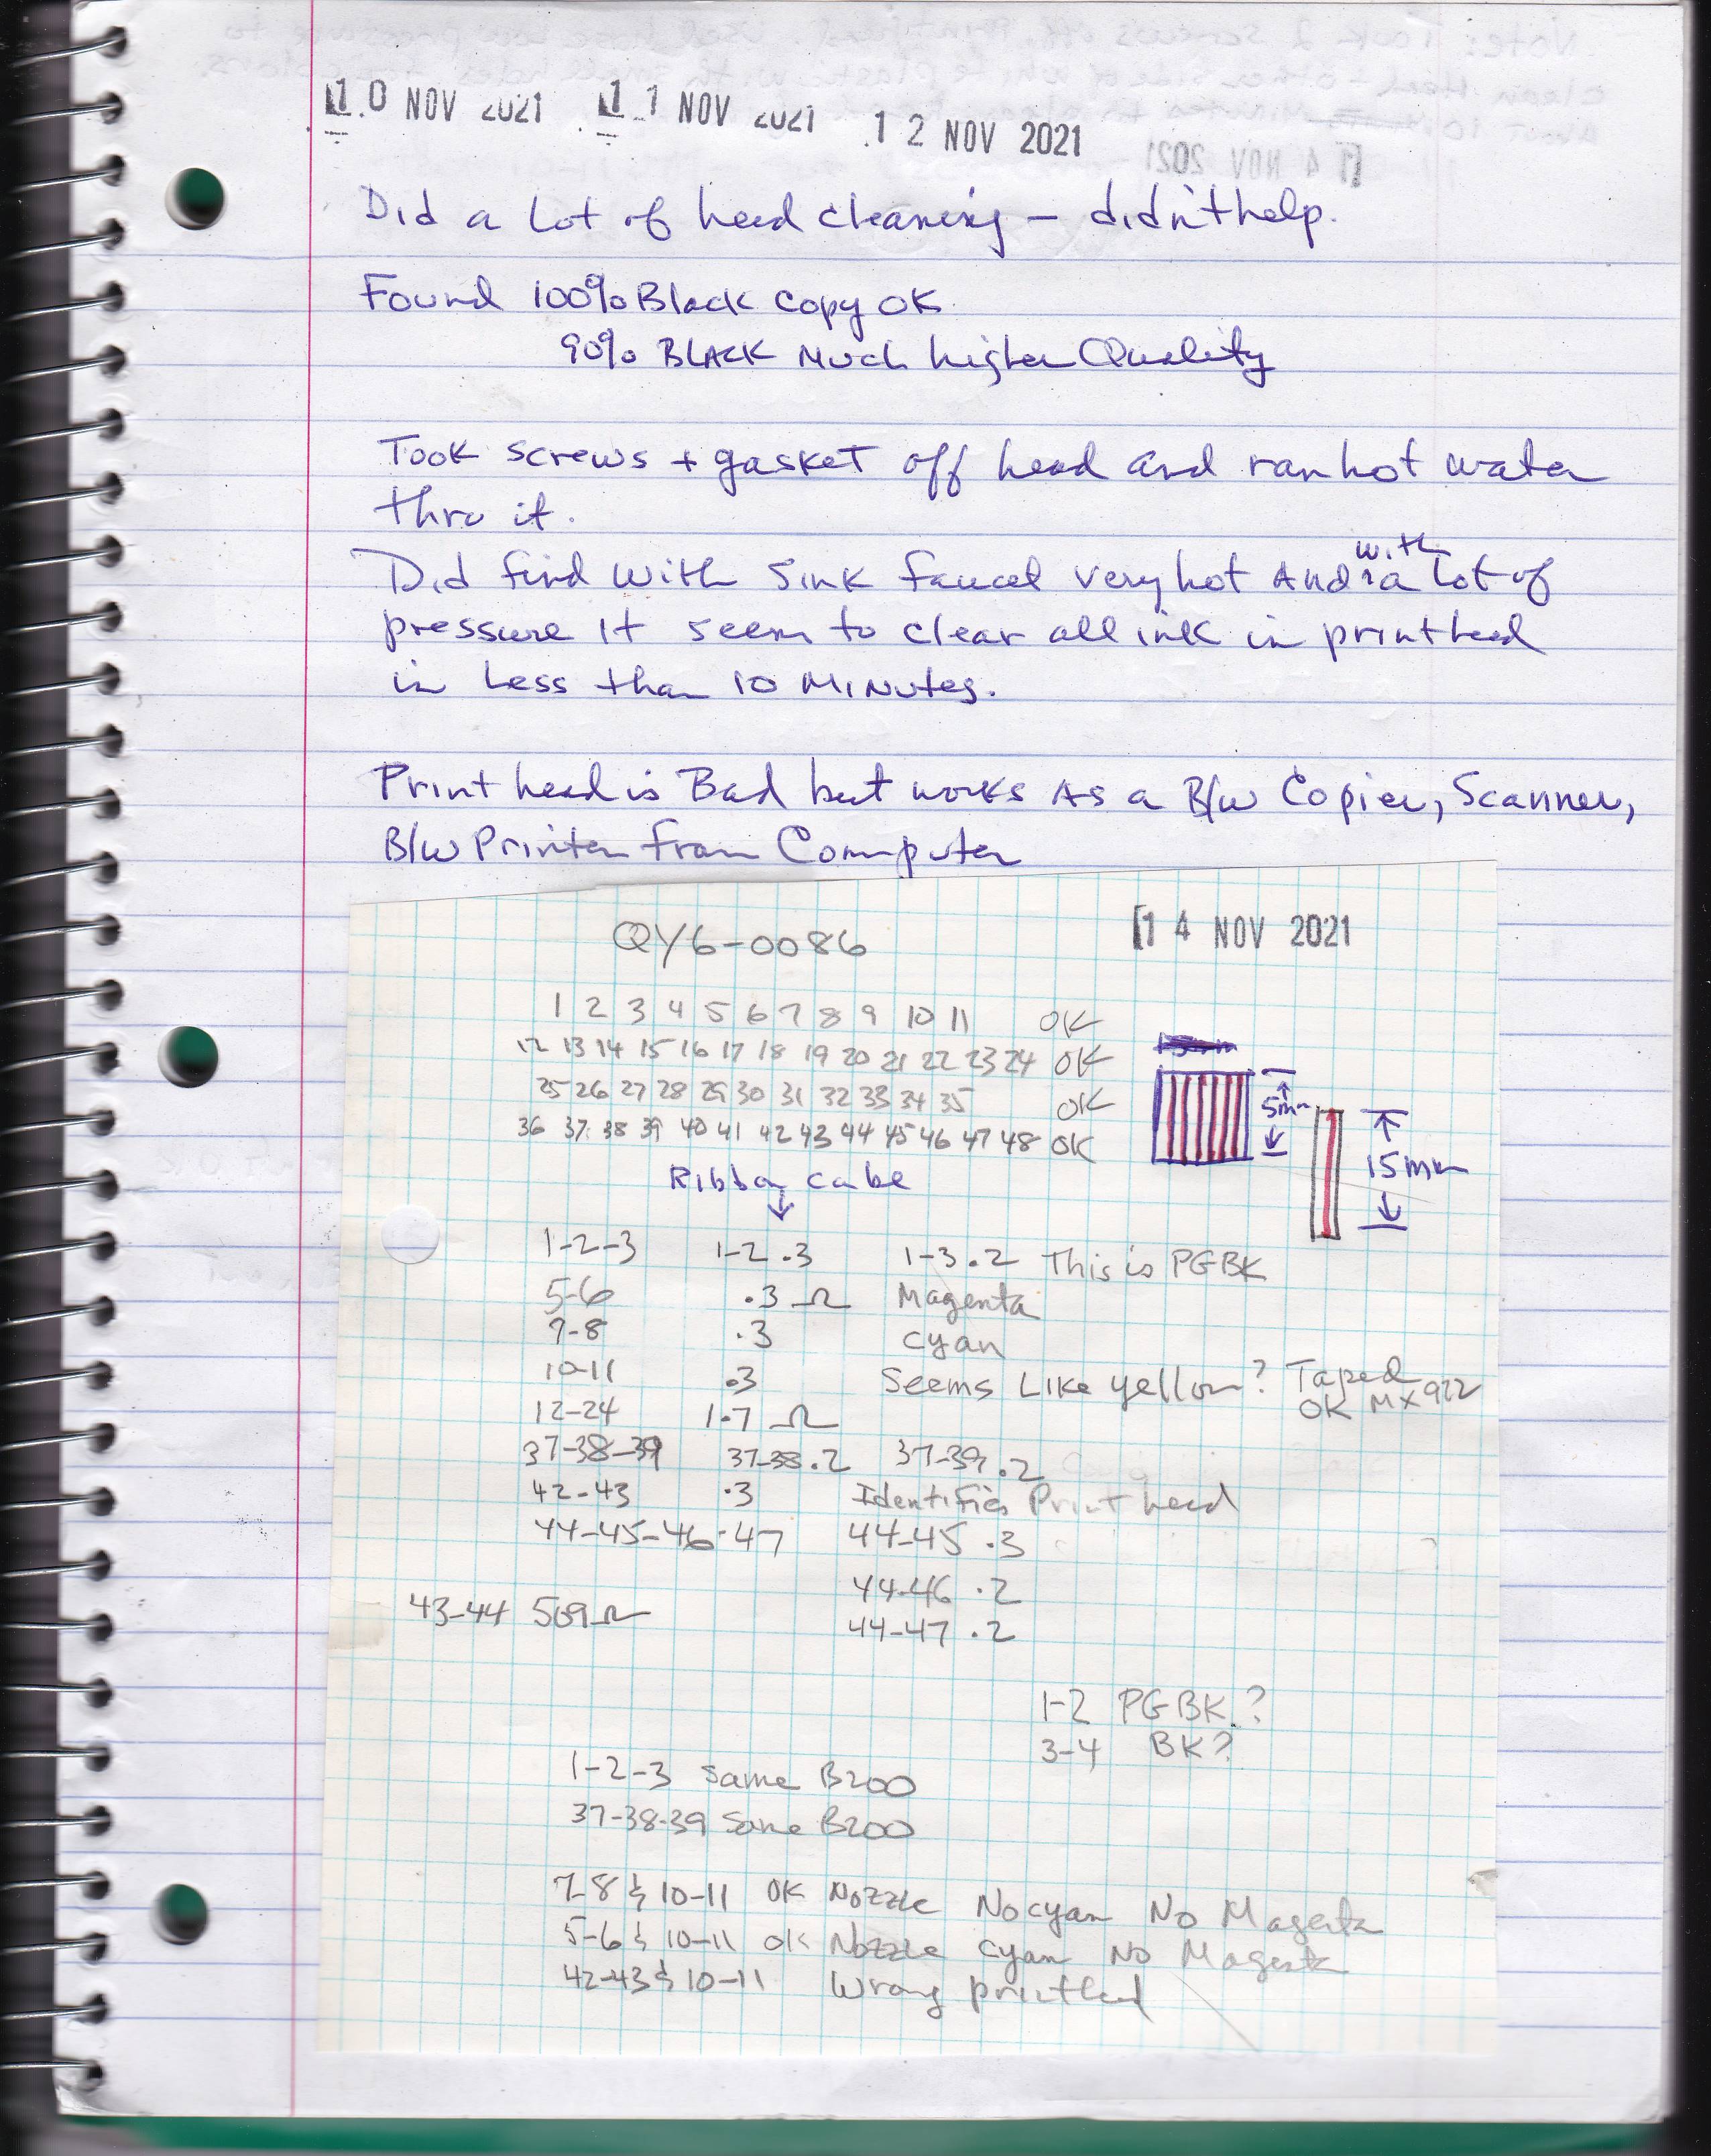 10 NOV 2021 11 NOV 2021 12 NOV 2021
Did a Lot of head cleaning – didn't help.
Found 100% Black Copy OK
90% BLACK Much higher Quality
Took screws + gasket off head and ran hot water
thru it.
Did find with Sink faucet very hot And with a Lot of
pressure it seem to clear all ink in printhead
in Less than 10 Minutes.
Print head is Bad but works As a B/W Copier, Scanner,
B/W Printer from Computer
QY6-0086 14 NOV 2021
1 2 3 4 5 6 7 8 9 10 11 OK
12 13 14 15 16 17 18 19 20 21 22 23 24 OK
25 26 27 28 29 30 31 32 33 34 35 OK
36 37 38 39 40 41 42 43 44 45 46 47 48 OK
5mm
15mm
Ribbon cabe
1-2-3 1-2 .3 1-3 .2 This is PGBK
5-6 .3 Ω Magenta
7-8 .3 Cyan
10-11 .3 Seems Like yellow? Taped
OK MX922
12-24 1.7 Ω
37-38-39 37-38 .2 37-39 .2
42-43 .3 Identifies Print head
44-45-46-47 44-45 .3
44-46 .2
43-44 509Ω
44-47 .2
1-2 PGBK?
3-4 BK?
1-2-3 Same B200
37-38-39 Same B200
7-8 & 10-11 OK Nozzle No cyan No Magenta
5-6 & 10-11 OK Nozzle Cyan No Magenta
42-43 & 10-11 Wrong printhead